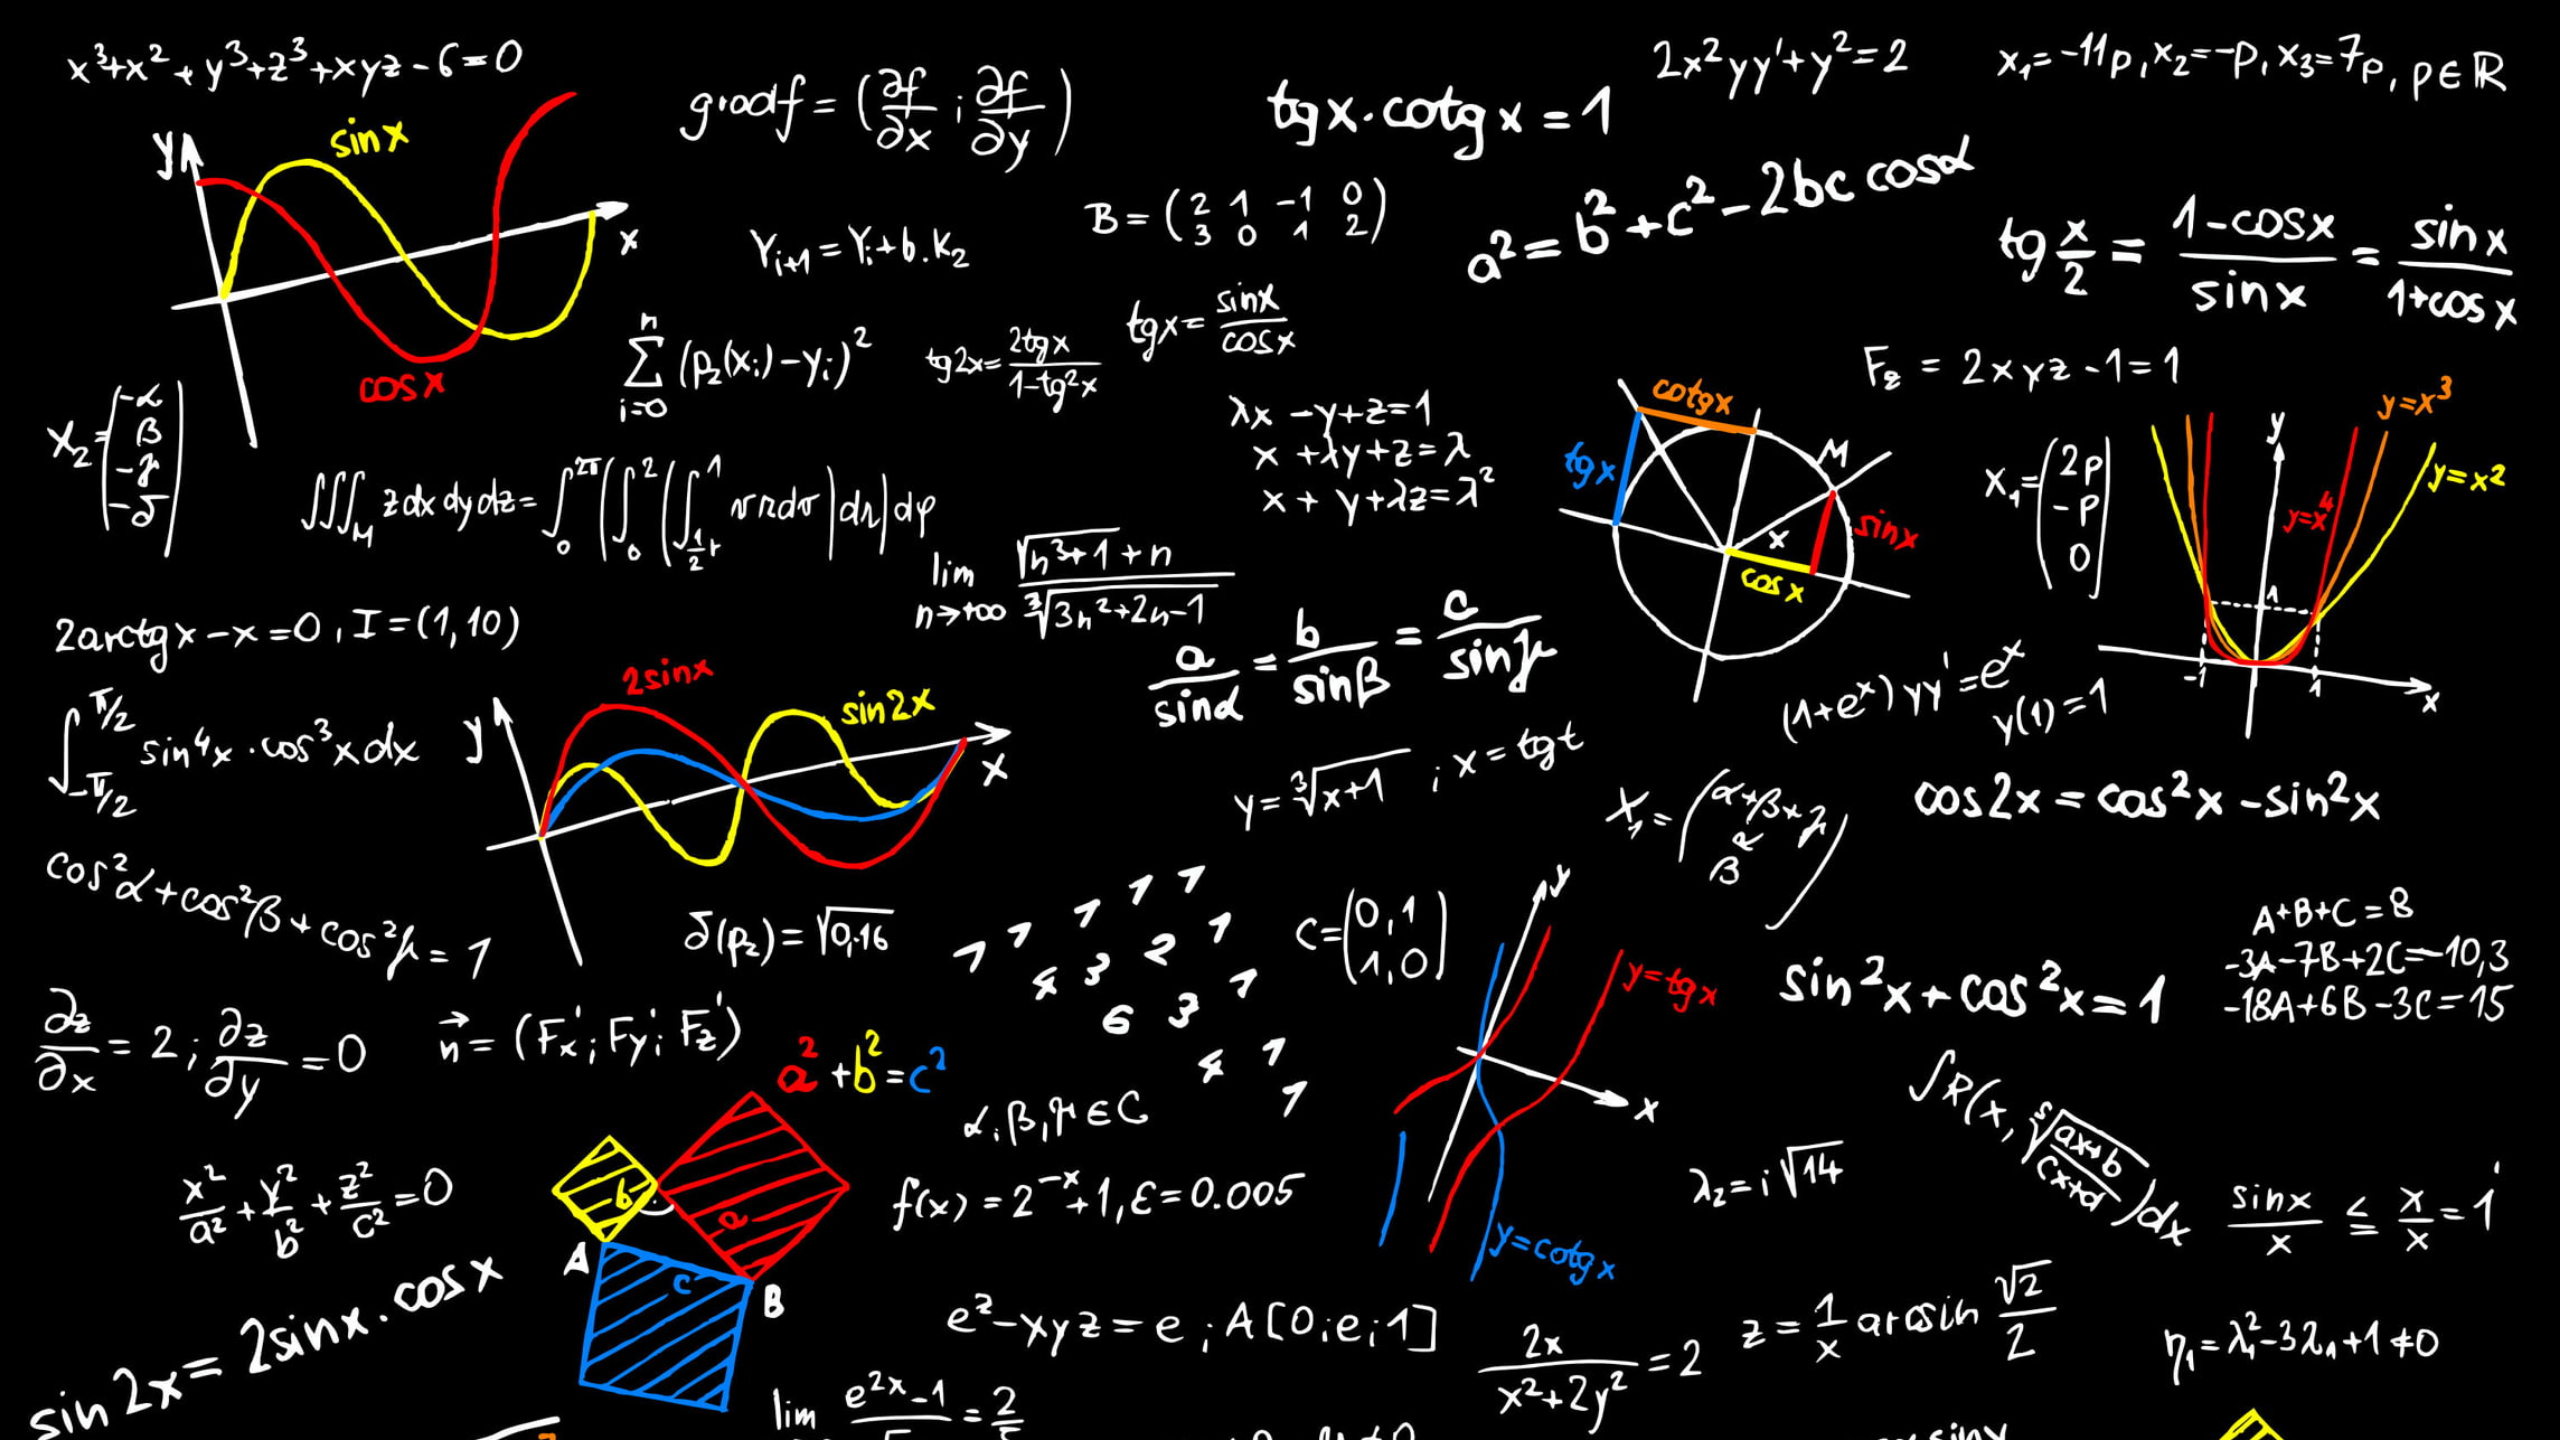 x³+x²+y³+z³+xyz-6=0
gradf=(∂f/∂x;∂f/∂y)
tgx·cotgx=1
2x²yy'+y²=2
x₁=-11p,x₂=-p,x₃=7p,p∈ℝ
y
sinx
x
cosx
Yᵢ₊₁=Yᵢ+b.K₂
B=(2 1 -1 0
3 0 1 2)
a²=b²+c²-2bc cosα
tg x/2 = (1-cosx)/sinx = sinx/(1+cosx)
∑ i=0 n (p₂(xᵢ)-yᵢ)²
tg2x=2tgx/(1-tg²x)
tgx=sinx/cosx
F₂ = 2xyz-1=1
X₂=(-α
β
-γ
-δ)
λx-y+z=1
x+λy+z=λ
x+y+λz=λ²
cotgx
tgx
M
sinx
x
cosx
X₁=(2p
-p
0)
y
y=x³
y=x²
y=x⁴
1
-1
1
x
∭M zdxdydz=
2arctgx-x=0,I=(1,10)
lim n→+∞ (√(n³+1)+n)/∛(3n²+2n-1)
a/sinα=b/sinβ=c/sinγ
(1+eˣ)yy'=eˣ
y(1)=1
∫-π/2 π/2 sin⁴x·cos³xdx
y
2sinx
sin2x
x
y=∛(x+1) ; x=tgt
X₁=(α+β+γ
α
β)
cos2x=cos²x-sin²x
cos²α+cos²β+cos²γ=1
δ(p₂)=√0,16
1 1 1 1 1
4 3 2 1
6 3 1
4 1
1
C=(0,1
1,0)
y
y=tgx
x
y=cotgx
sin²x+cos²x=1
A+B+C=8
-3A-7B+2C=-10,3
-18A+6B-3C=15
∂z/∂x=2;∂z/∂y=0
n⃗=(Fx';Fy';Fz')
a²+b²=c²
b
a
c
A
B
α,β,γ∈C
∫R(x, ⁵√((ax+b)/(cx+d)))dx
x²/a²+y²/b²+z²/c²=0
f(x)=2⁻ˣ+1,ε=0.005
λ₂=i√14
sinx/x ≦ x/x=1
sin2x=2sinx·cosx
eᶻ-xyz=e;A[0;e;1]
2x/(x²+2y²)=2
z=1/x arcsin √2/2
η₁=λ₁²-3λ₁+1≠0
lim e²ˣ-1 = 2